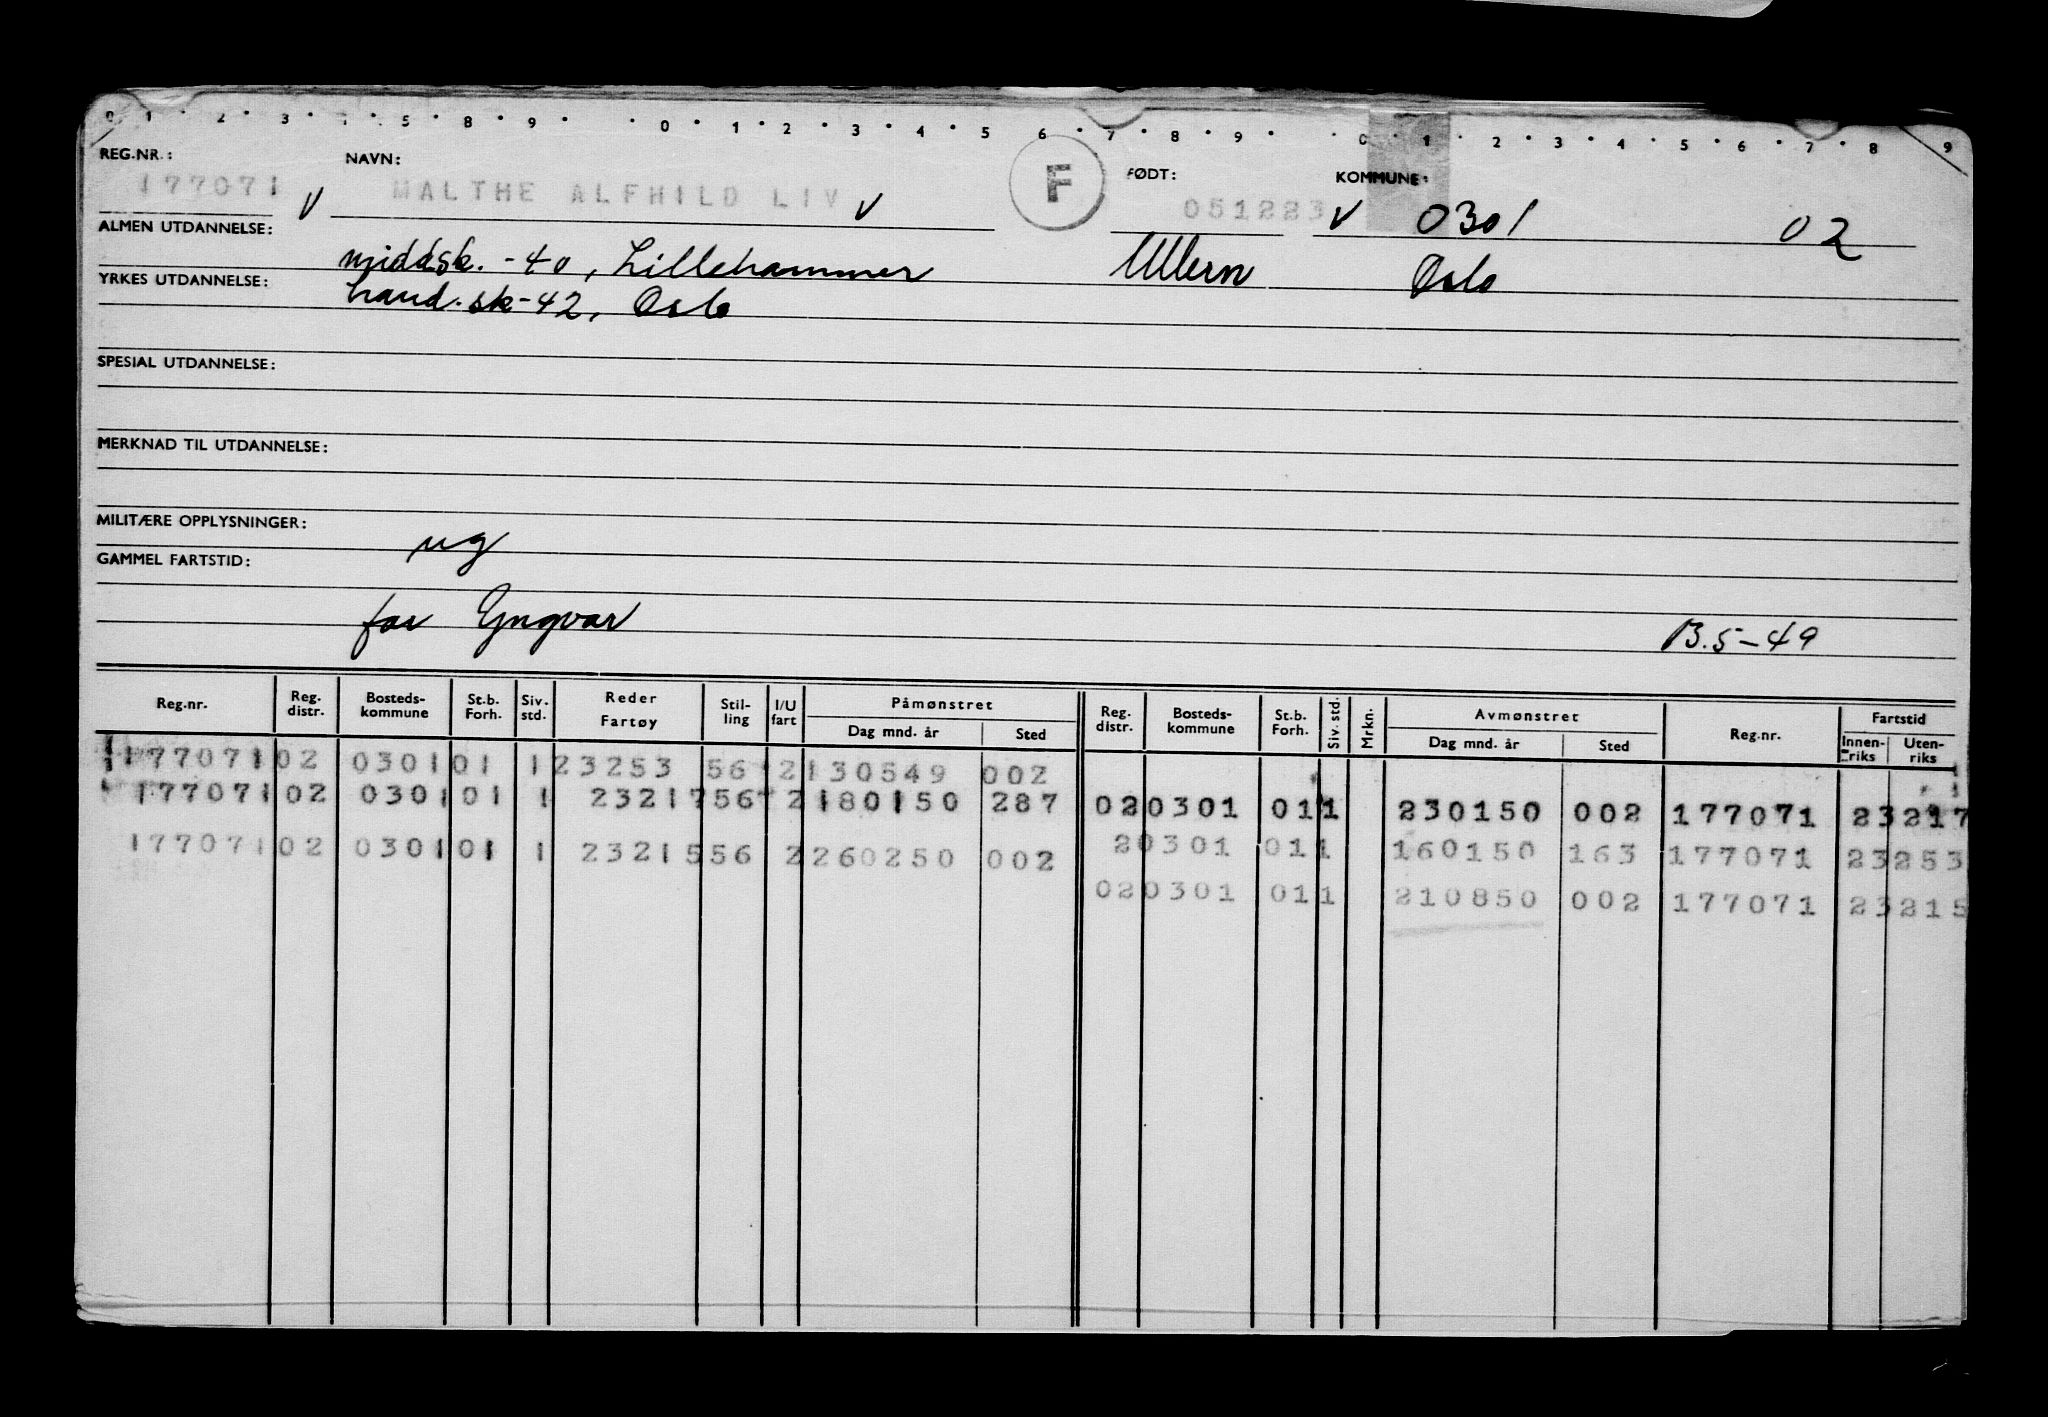 0 1 2 3 5 8 9 0 1 2 3 4 5 6 7 8 9 0 1 2 3 4 5 6 7 8 9
REG.NR.: NAVN: F FØDT: KOMMUNE:
177071 V MALTHE ALFHILD LIV V 051223 V 0301 02
ALMEN UTDANNELSE: middsk. -40, Lillehammer Ullern Oslo
YRKES UTDANNELSE: hand.sk-42, Oslo
SPESIAL UTDANNELSE:
MERKNAD TIL UTDANNELSE:
MILITÆRE OPPLYSNINGER:
ug
GAMMEL FARTSTID:
far Yngvar B.5-49
Reg.nr. Reg. distr. Bosteds-kommune St.b. Forh. Siv. std. Reder Fartøy Stil-ling I/U fart Påmønstret Dag mnd. år Sted Reg. distr. Bosteds-kommune St.b. Forh. Siv. std. Mrkn. Avmønstret Dag mnd. år Sted Reg.nr. Fartstid Innen-riks Uten-riks
177071 02 0301 01 1 23253 56 2 130549 002
177071 02 0301 01 1 23217 56 2 180150 287 02 0301 01 1 230150 002 177071 23217
177071 02 0301 01 1 23215 56 2 260250 002 2 0301 01 1 160150 163 177071 23253
02 0301 01 1 210850 002 177071 23215